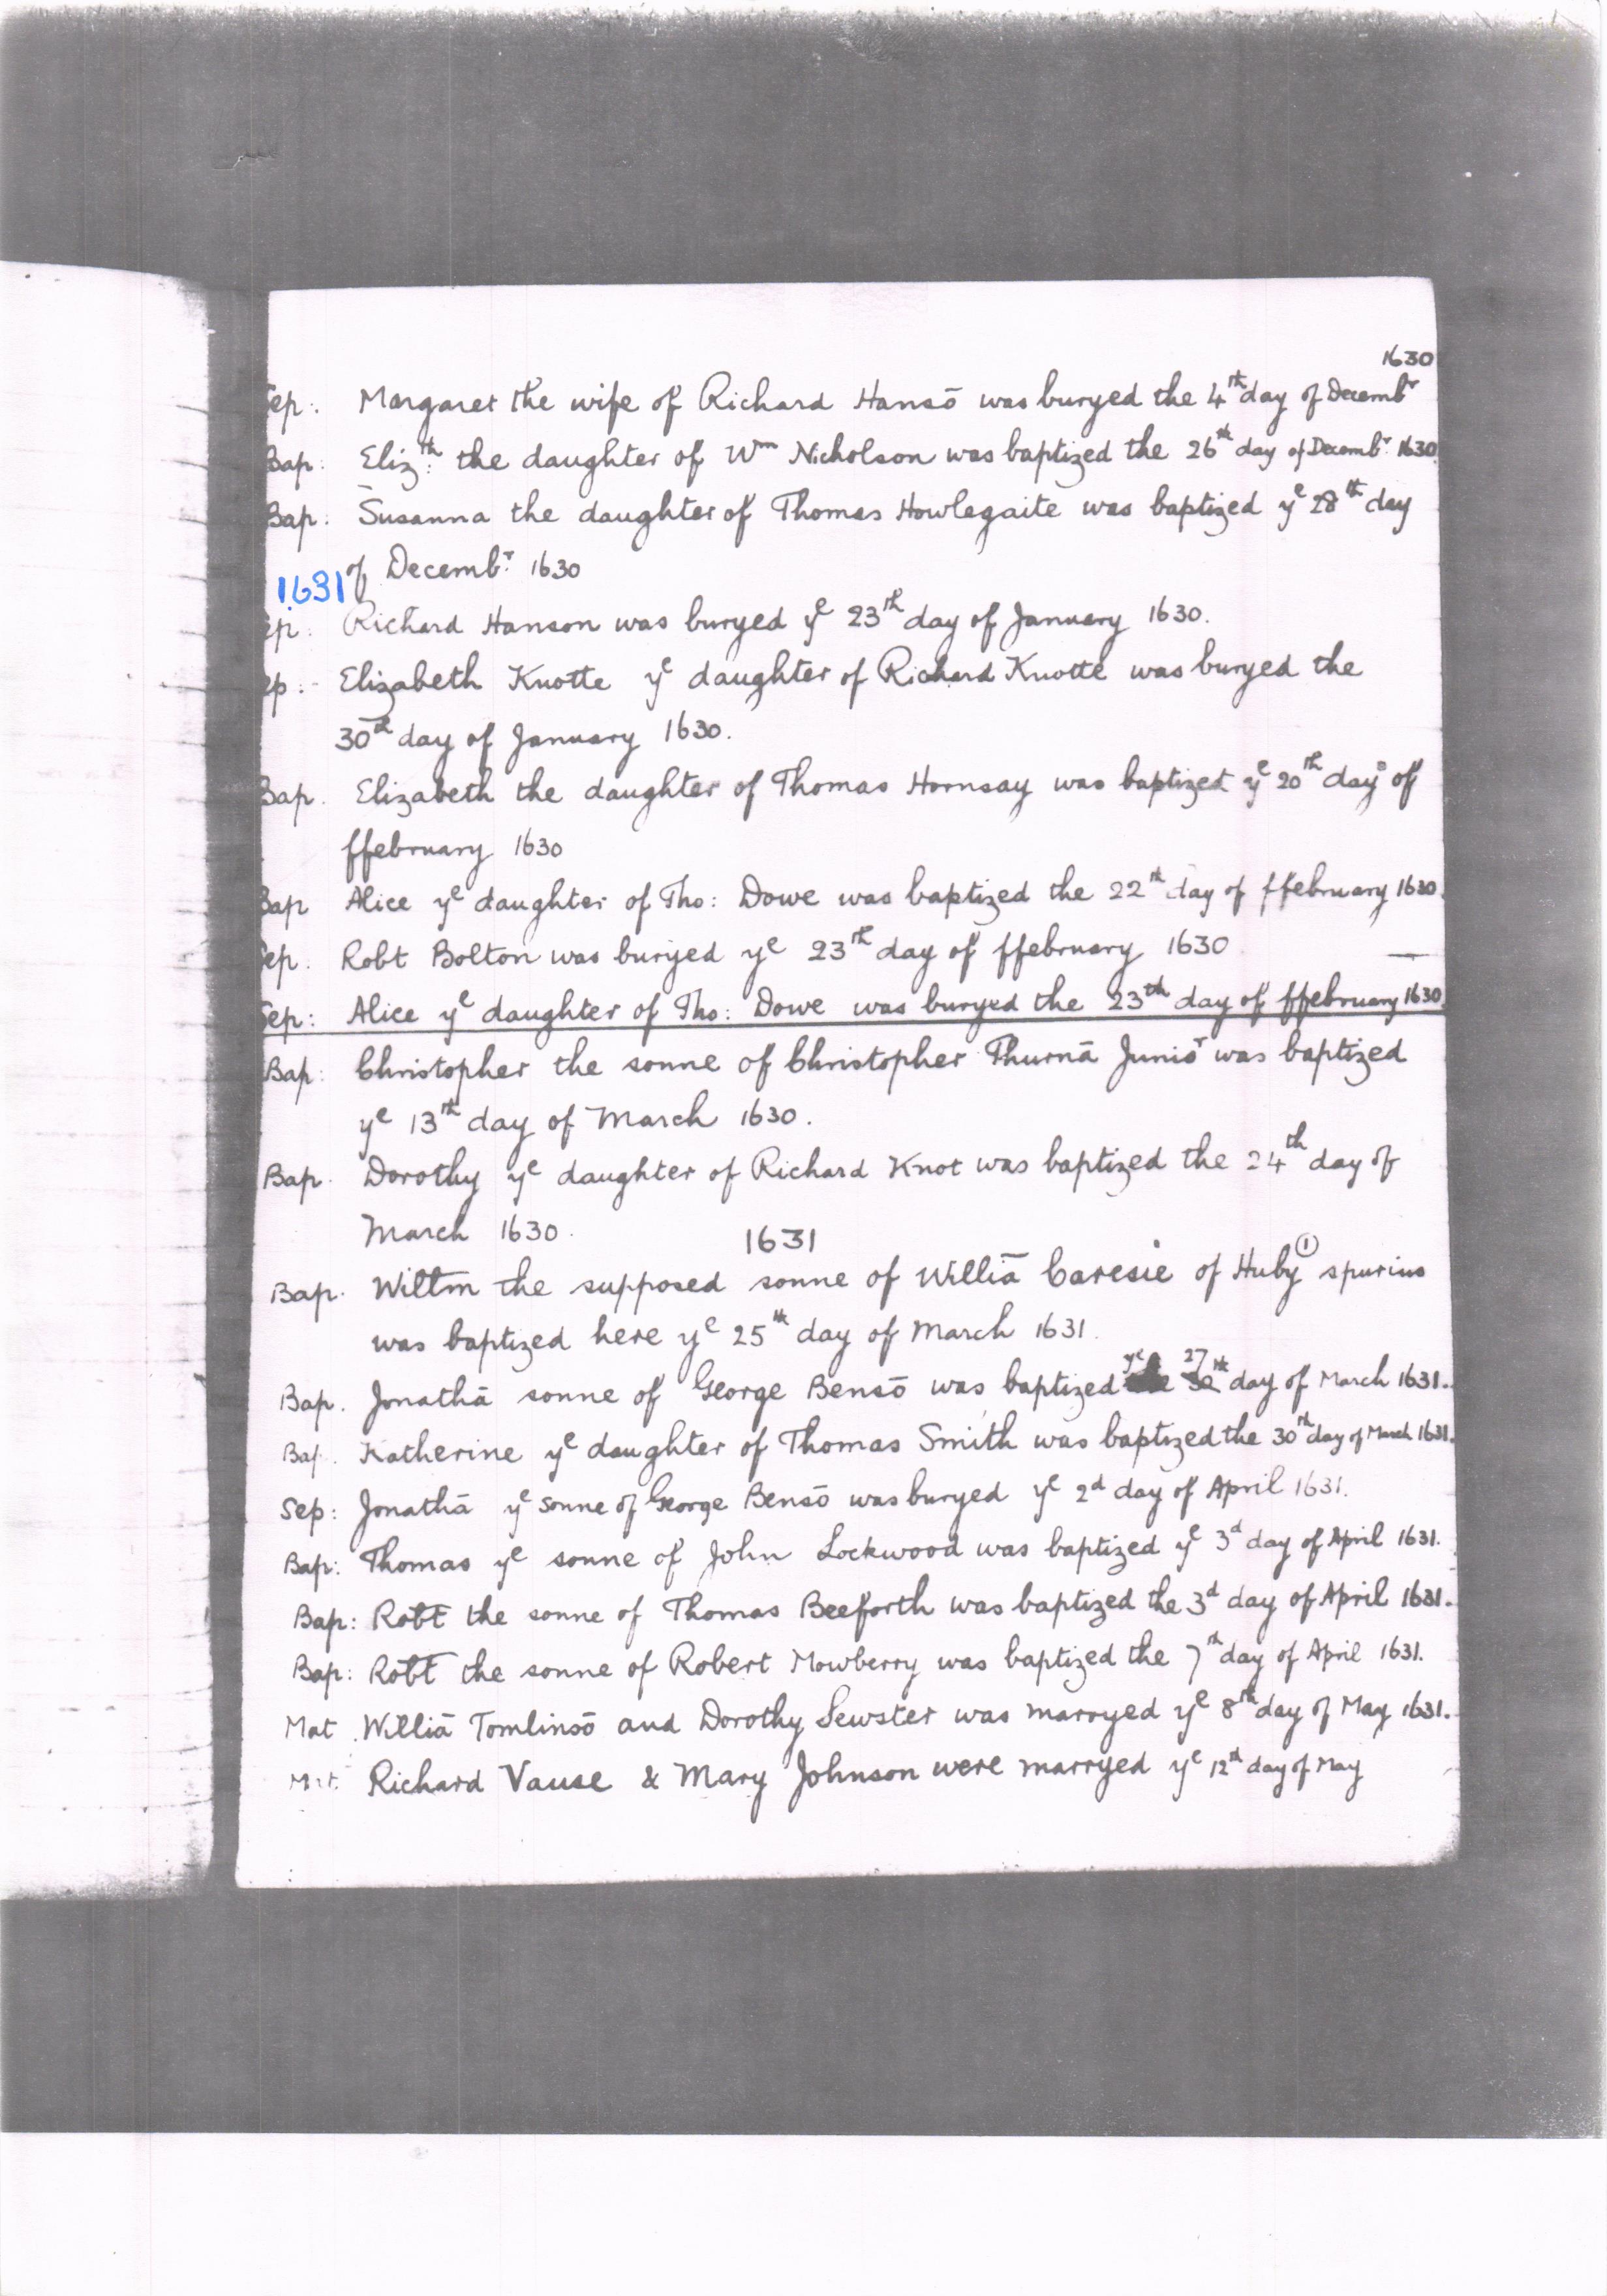 1630
Sep: Margaret the wife of Richard Hansō was buryed the 4th day of Decembr
Bap: Eliz:th the daughter of Wm Nicholson was baptized the 26th day of Decembr 1630
Bap: Susanna the daughter of Thomas Howlegaite was baptized ye 28th day
of Decembr: 1630
1631
ep: Richard Hanson was buryed ye 23th day of January 1630.
ep: Elizabeth Knotte ye daughter of Richard Knotte was buryed the
30th day of January 1630.
Bap. Elizabeth the daughter of Thomas Hornsay was baptized ye 20th day of
ffebruary 1630
Bap Alice ye daughter of Tho: Dowe was baptized the 22th day of ffebruary 1630.
Sep. Robt Bolton was buryed ye 23th day of ffebruary 1630
Sep: Alice ye daughter of Tho: Dowe was buryed the 23th day of ffebruary 1630.
Bap: Christopher the sonne of Christopher Thurnā Junior was baptized
ye 13th day of March 1630.
Bap. Dorothy ye daughter of Richard Knot was baptized the 24th day of
March 1630.
1631
Bap. Willm the supposed sonne of Williā Caresie of Huby ① spurius
was baptized here ye 25th day of March 1631.
Bap. Jonathā sonne of George Bensō was baptized ye 27th day of March 1631.
Bap. Katherine ye daughter of Thomas Smith was baptized the 30th day of March 1631.
Sep: Jonathā ye sonne of George Bensō was buryed ye 2d day of April 1631.
Bap: Thomas ye sonne of John Lockwood was baptized ye 3d day of April 1631.
Bap: Robt the sonne of Thomas Beeforth was baptized the 3d day of April 1631.
Bap: Robt the sonne of Robert Mowberry was baptized the 7th day of April 1631.
Mat. Williā Tomlinsō and Dorothy Sewster was marryed ye 8th day of May 1631.
Mat. Richard Vause & Mary Johnson were marryed ye 12th day of May